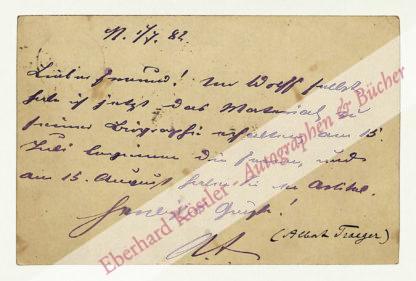 N. 1/7. 82.
Lieber Freund! Von Wolff selbst
habe ich jetzt das Material zu
seiner Biographie erhalten am 15.
Juli beginnen die Ferien, und
am 15. August haben Sie den Artikel.
Herzliche Grüße!
(Albert Traeger)
Eberhard Köstler Autographen & Bücher